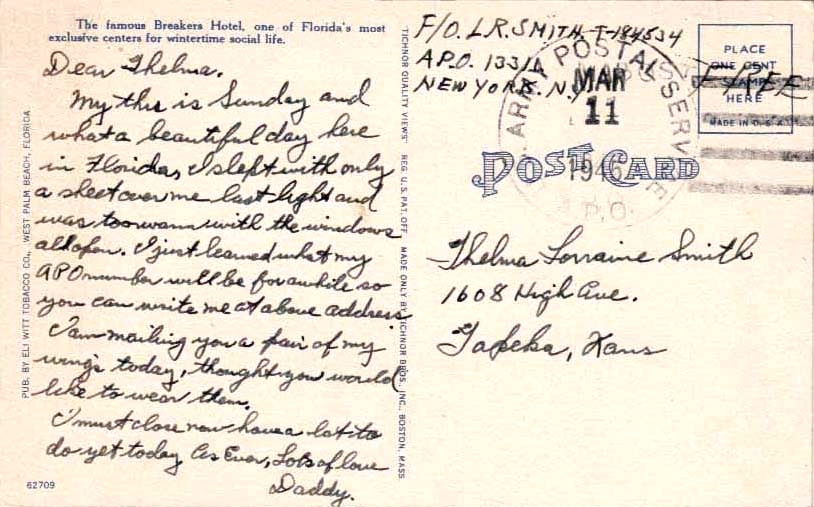 The famous Breakers Hotel, one of Florida's most
exclusive centers for wintertime social life.
Dear Thelma,
My this is Sunday and
what a beautiful day here
in Florida, I slept with only
a sheet over me last night and
was too warm with the windows
all open. I just learned what my
APO number will be for awhile so
you can write me at above address.
I am mailing you a pair of my
wings today, thought you would
like to wear them.
I must close now have a lot to
do yet today As Ever, Lots of love
Daddy.
62709
PUB. BY ELI WITT TOBACCO CO., WEST PALM BEACH, FLORIDA
"TICHNOR QUALITY VIEWS" REG. U. S. PAT. OFF. MADE ONLY BY TICHNOR BROS., INC., BOSTON, MASS.
F/O. L.R. SMITH. T-184534
A.P.O.
NEW YORK. N.Y.
ARMY POSTAL SERVICE
MAR
11
1945
P.O.
FREE
PLACE
ONE CENT
STAMP
HERE
MADE IN U. S. A.
POST CARD
Thelma Lorraine Smith
1608 High Ave.
Topeka, Kans